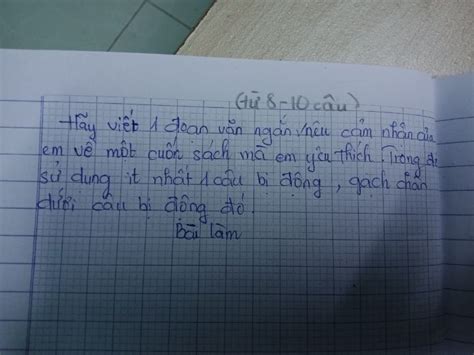 (từ 8-10 câu)
Hãy viết 1 đoạn văn ngắn nêu cảm nhận của
em về một cuốn sách mà em yêu thích. Trong đó
sử dụng ít nhất 1 câu bị động, gạch chân
dưới câu bị động đó.
Bài làm